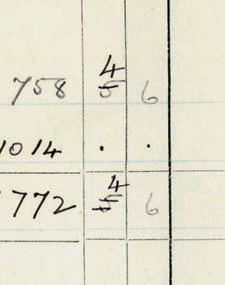 758 4 6
1014 . .
1772 4 6